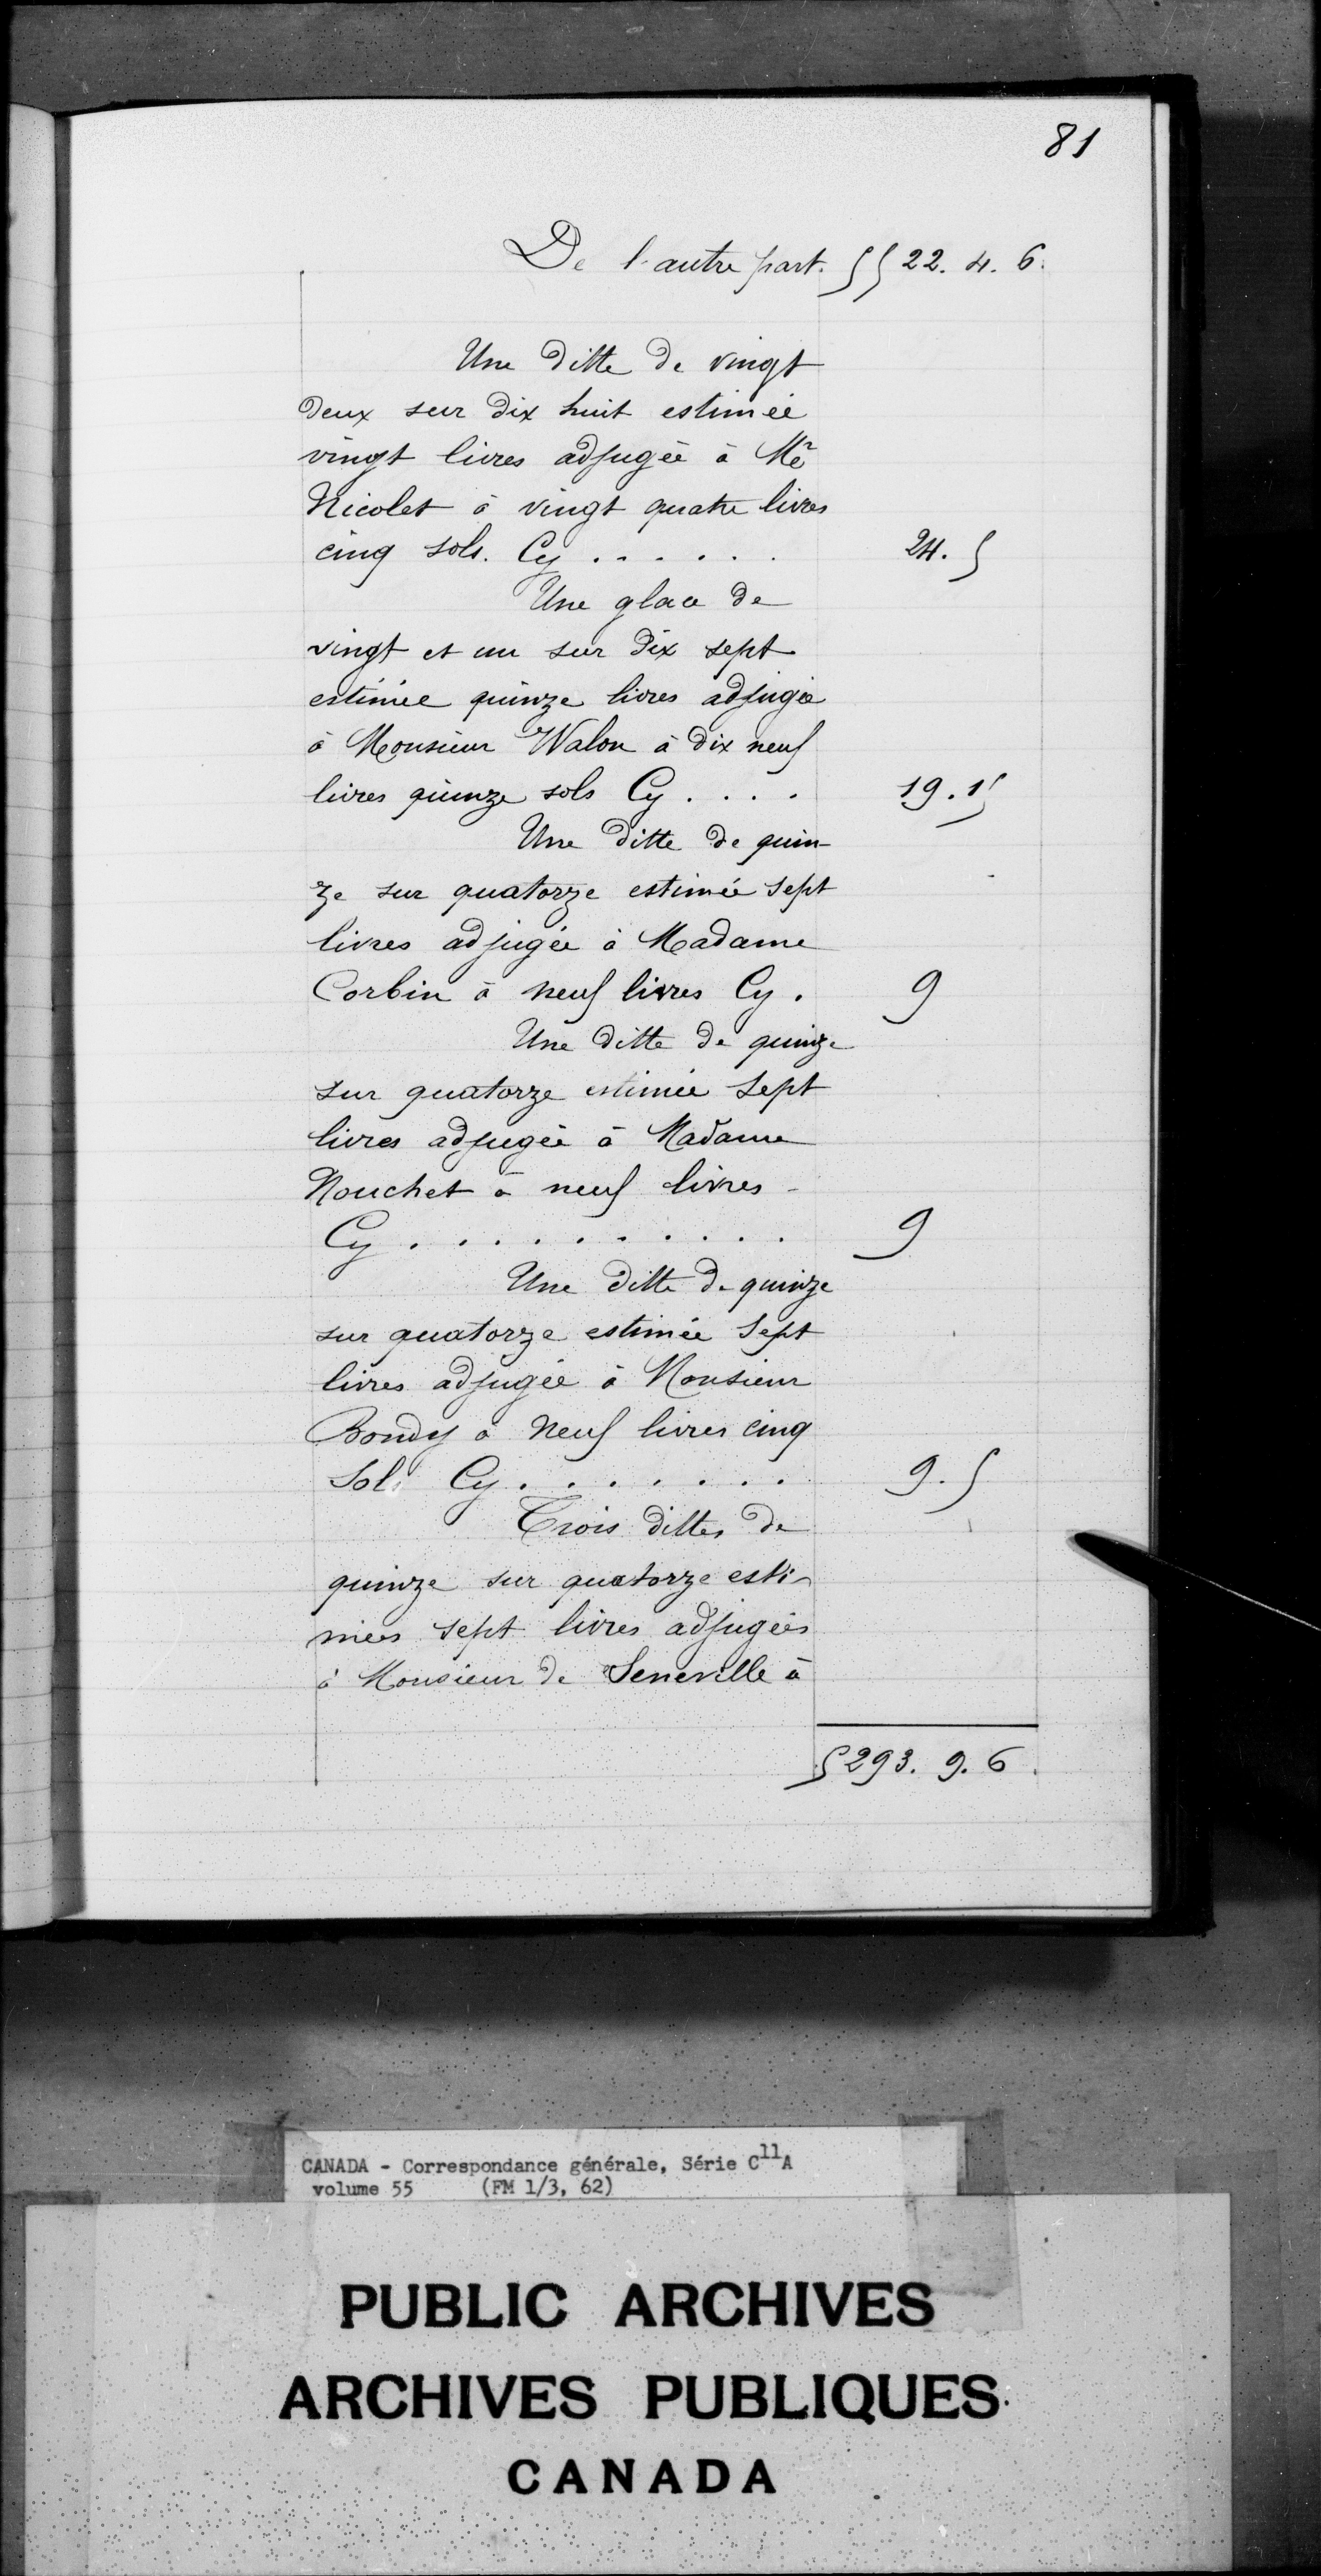 81
De l'autre part. 5522. 4. 6.
Une ditte de vingt
deux sur dix huit estimée
vingt livres adjugée à Mr
Nicolet à vingt quatre livres
cinq sols. Cy . . . . . . 24. 5
Une glace de
vingt et un sur dix sept
estimée quinze livres adjugée
à Monsieur Walon à dix neuf
livres quinze sols Cy . . . . 19. 15
Une ditte de quin-
ze sur quatorze estimée sept
livres adjugée à Madame
Corbin à neuf livres Cy . 9
Une ditte de quinze
sur quatorze estimée sept
livres adjugée à Madame
Nouchet à neuf livres -
Cy . . . . . . . . . . 9
Une ditte de quinze
sur quatorze estimée sept
livres adjugée à Monsieur
Bondy à neuf livres cinq
Sols Cy . . . . . . . 9. 5
Trois dittes de
quinze sur quatorze esti-
mées sept livres adjugées
à Monsieur de Seneville à
5293. 9. 6.
CANADA - Correspondance générale, Série C11A
volume 55 (FM 1/3, 62)
PUBLIC ARCHIVES
ARCHIVES PUBLIQUES
CANADA